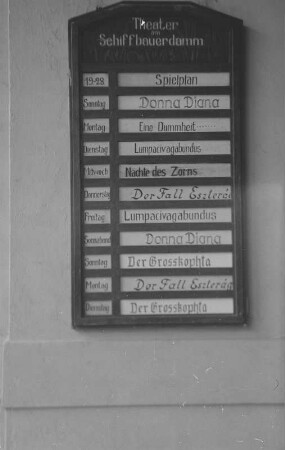 Theater
am
Schiffbauerdamm
19-28. Spielplan
Sonntag Donna Diana
Montag Eine Dummheit ......
Dienstag Lumpacivagabundus
Mittwoch Nächte des Zorns
Donnerstag Der Fall Eszterág
Freitag Lumpacivagabundus
Sonnabend Donna Diana
Sonntag Der Grosskophta
Montag Der Fall Eszterág
Dienstag Der Grosskophta